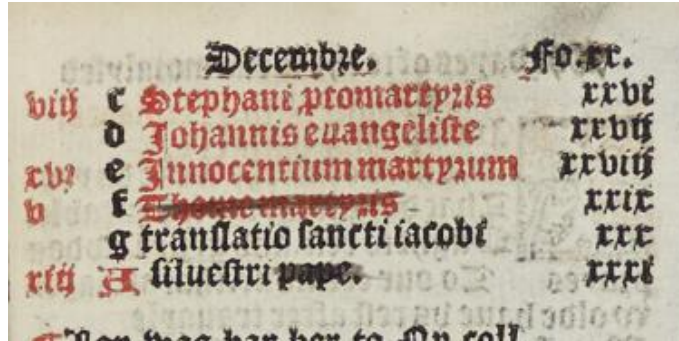 Decembre. Fo.xx.
viij c Stephani ptomartyris xxvi
d Johannis euangeliste xxvij
xvi e Innocentium martyrum xxviij
v f Thome martyris xxix
g translatio sancti iacobi xxx
xiij A siluestri pape. xxxi